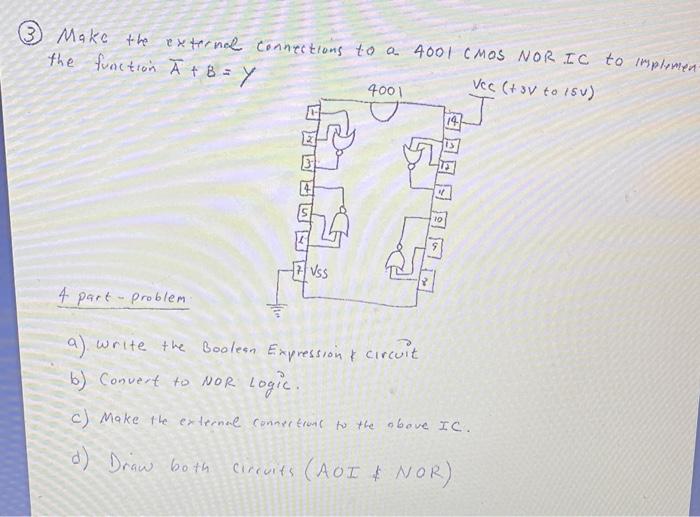 ③ Make the external connections to a 4001 CMOS NOR IC to implemen
the function A̅ + B = Y
4001
Vcc (+3V to 15V)
1
14
2
13
3
12
4
11
5
10
6
9
7 Vss
8
4 part - problem
a) Write the Boolean Expression & circuit
b) Convert to NOR Logic.
c) Make the external connections to the above IC.
d) Draw both circuits (AOI & NOR)